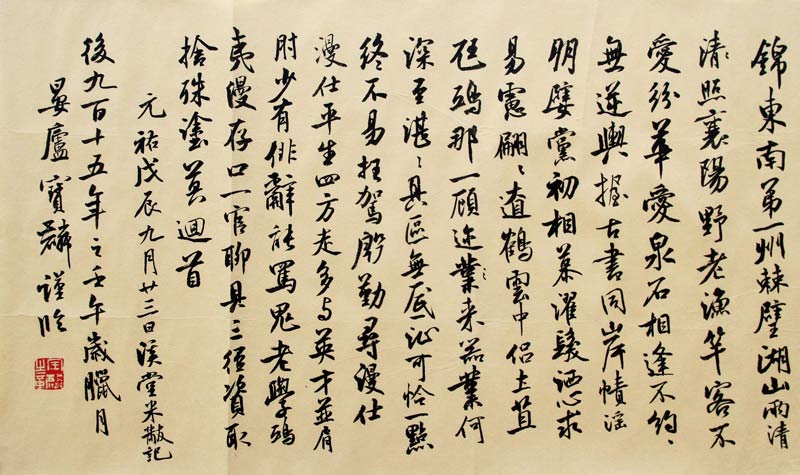 錦東南第一州棘璧湖山兩清
清照襄陽野老漁竿客不
愛紛華愛泉石相逢不約〻
無逆輿握古書同岸幘淫
朋嬖黨初相慕濯髮洒心求
易慮翩〻遼鶴雲中侶土苴
尫鴟那一顧迩業来器業何
深至湛〻具區無底沚可怜一點
終不易枉駕殷勤尋漫仕
漫仕平生四方走多与英才並肩
肘少有俳辭能罵鬼老學鴟
夷漫存口一官聊具三徑資取
捨殊塗莫迴首
元祐戊辰九月廿三日溪堂米黻記
後九百十五年之壬午歲臘月
晏廬寶麟謹臨